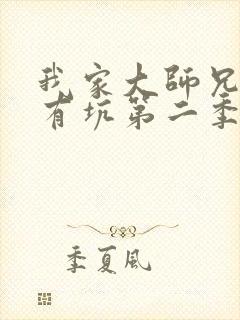 我家大師兄
有坑第二季
季夏風